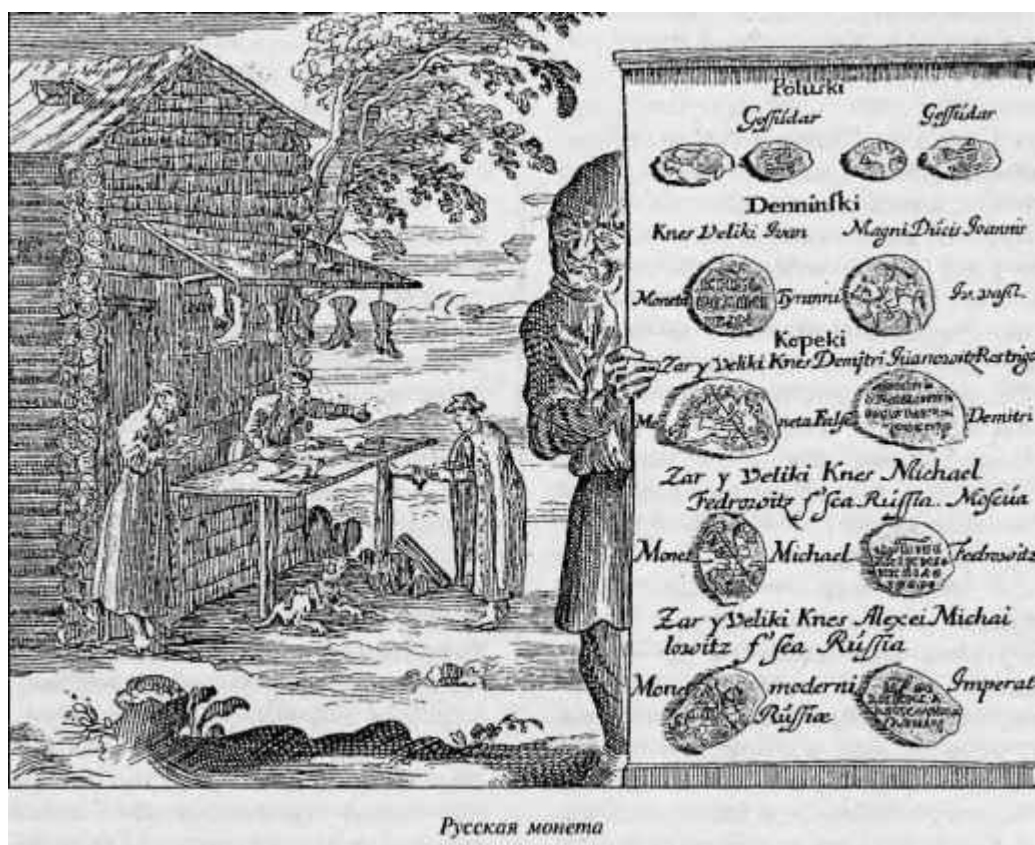 Poluski
Gossudar Gossudar
Denninski
Knes Veliki Ivan Magni Ducis Joannis
Moneta Tyranni Iv. Vasil.
Kopeki
Zar y Veliki Knes Demitri Ivanowitz Rostrigo
Moneta False Demitri
Zar y Veliki Knes Michael
Fedrowitz f'sea Russia. Moscua
Monet Michael Fedrowitz
Zar y Veliki Knes Alexei Michai
lowitz f'sea Russia
Monet moderni Imperat
Russiæ
Русская монета